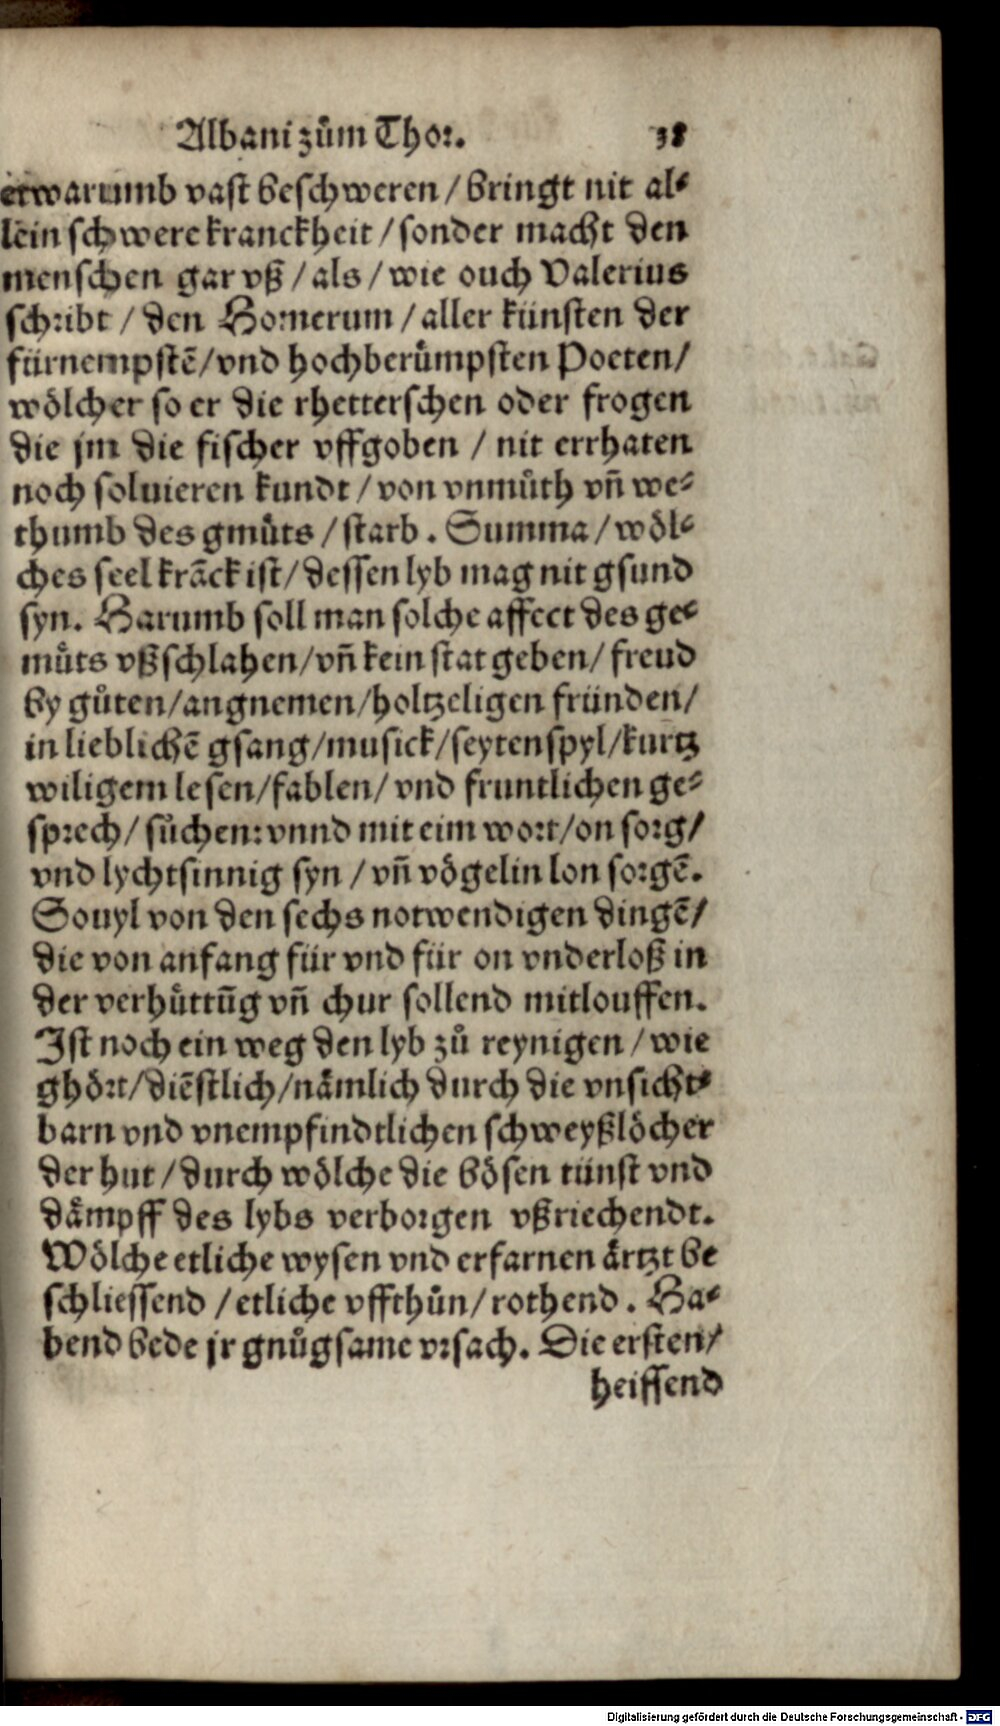 Albani zům Thor. 38
etwarumb vast beschweren / bringt nit al⸗
lein schwere kranckheit / sonder macht den
menschen gar vß / als / wie ouch Valerius
schribt / den Homerum / aller künsten der
fürnempstē / vnd hochberůmpsten Poeten /
wölcher so er die rhetterschen oder frogen
die jm die fischer vffgoben / nit errhaten
noch soluieren kundt / von vnmůth vn̄ we⸗
thumb des gmůts / starb. Summa / wöl⸗
ches seel krāck ist / dessen lyb mag nit gsund
syn. Harumb soll man solche affect des ge⸗
můts vßschlahen / vn̄ kein stat geben / freud
by gůten / angnemen / holtzeligen fründen /
in lieblichē gsang / musick / seytenspyl / kurtz
wiligem lesen / fablen / vnd fruntlichen ge⸗
sprech / sůchen: vnnd mit eim wort / on sorg /
vnd lychtsinnig syn / vn̄ vögelin lon sorgē.
Souyl von den sechs notwendigen dingē /
die von anfang für vnd für on vnderloß in
der verhůttūg vn̄ chur sollend mitlouffen.
Ist noch ein weg den lyb zů reynigen / wie
ghört / diēstlich / nämlich durch die vnsicht⸗
barn vnd vnempfindtlichen schweyßlöcher
der hut / durch wölche die bösen tünst vnd
dämpff des lybs verborgen vßriechendt.
Wölche etliche wysen vnd erfarnen ärtzt be
schliessend / etliche vffthůn / rothend. Ha⸗
bend bede jr gnůgsame vrsach. Die ersten /
heissend
Digitalisierung gefördert durch die Deutsche Forschungsgemeinschaft - DFG